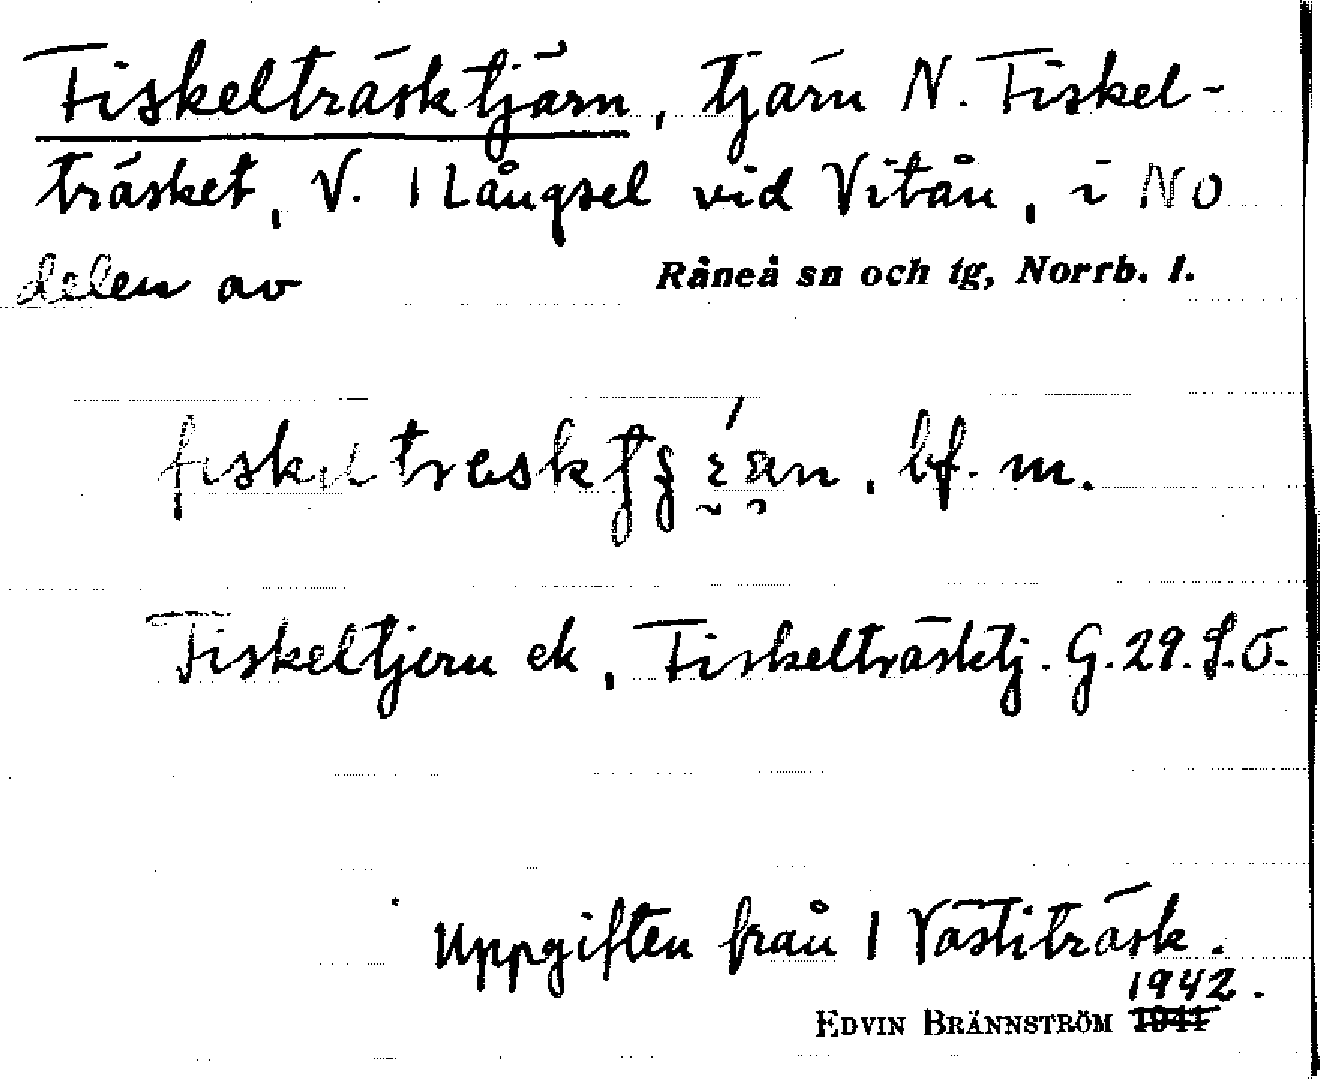 Fiskelträsktjärn, tjärn N. Fiskel-
träsket, V. 1 Långsel vid Vitån, i NO
delen av Råneå sn och tg, Norrb. l.
bf. m.
Fiskeltjern ek, Fiskelträsktj. G. 29. S.O.
Uppgiften från 1 Västiträsk.
1942.
EDVIN BRÄNNSTRÖM 1941